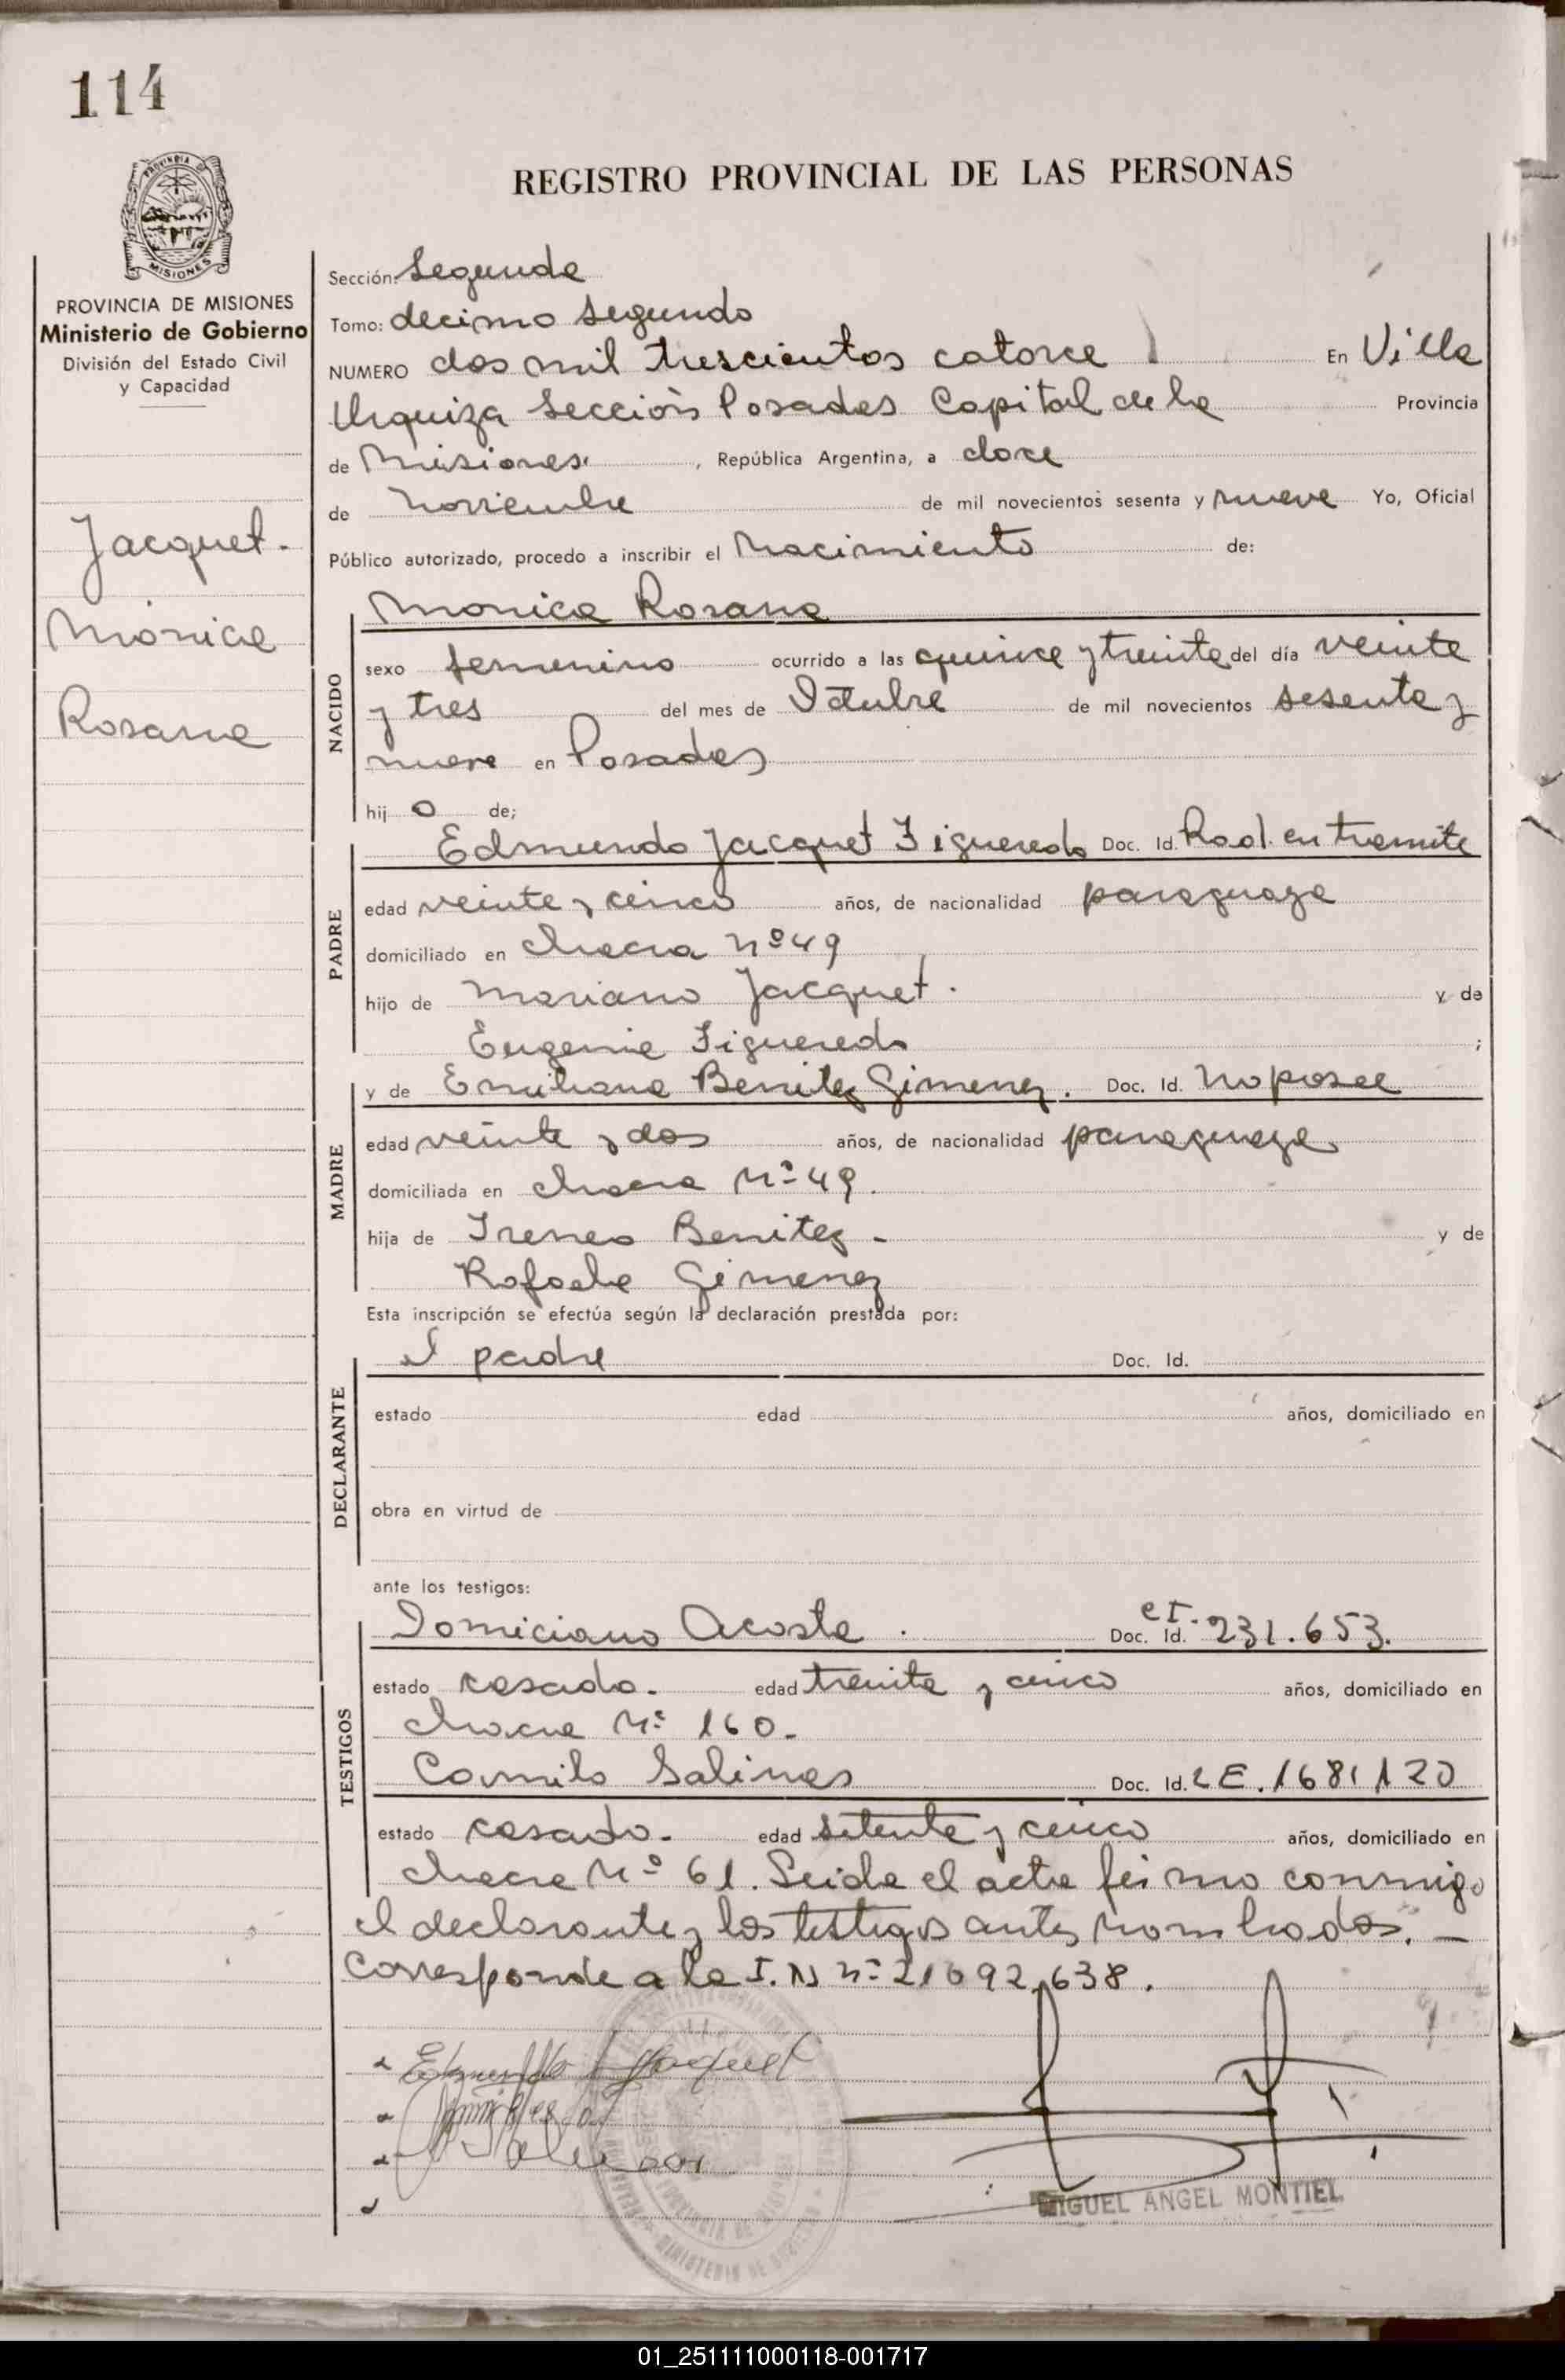 114
PROVINCIA DE
MISIONES
PROVINCIA DE MISIONES
Ministerio de Gobierno
División del Estado Civil
y Capacidad
Jacquet.
Mónica
Rosana
REGISTRO PROVINCIAL DE LAS PERSONAS
Sección: Segunda
Tomo: decimo segundo
NUMERO dos mil trescientos catorce En Villa
Urquiza Sección Posadas Capital de la Provincia
de Misiones, República Argentina, a doce
de Noviembre de mil novecientos sesenta y nueve Yo, Oficial
Público autorizado, procedo a inscribir el Nacimiento de:
NACIDO
Monica Rosana
sexo femenino ocurrido a las quince y treinta del día veinte
y tres del mes de Octubre de mil novecientos sesenta y
nueve en Posadas
hij o de;
PADRE
Edmundo Jacquet Figueredo Doc. Id. Rad. en tramite
edad veinte y cinco años, de nacionalidad paraguaya
domiciliado en chacra Nº 49
hijo de Mariano Jacquet. y de
Eugenia Figueredo ;
MADRE
y de Emiliana Benitez Gimenez. Doc. Id. No posee
edad veinte y dos años, de nacionalidad paraguaya
domiciliada en chacra Nº 49.
hija de Ireneo Benitez - y de
Rafaela Gimenez
Esta inscripción se efectúa según la declaración prestada por:
DECLARANTE
el padre Doc. Id.
estado edad años, domiciliado en
obra en virtud de
ante los testigos:
TESTIGOS
Domiciano Acosta. Doc. Id. CI. 231.653.
estado casado. edad treinta y cinco años, domiciliado en
chacra Nº 160.
Camilo Salinas Doc. Id. LE. 1681120
estado casado. edad setenta y cinco años, domiciliado en
chacra Nº 61. Leida el acta firmo conmigo
el declarante y los testigos antes nombrados. -
Corresponde a la I. N nº 21092,638.
Edmundo Jaquet
MIGUEL ANGEL MONTIEL
01_251111000118-001717